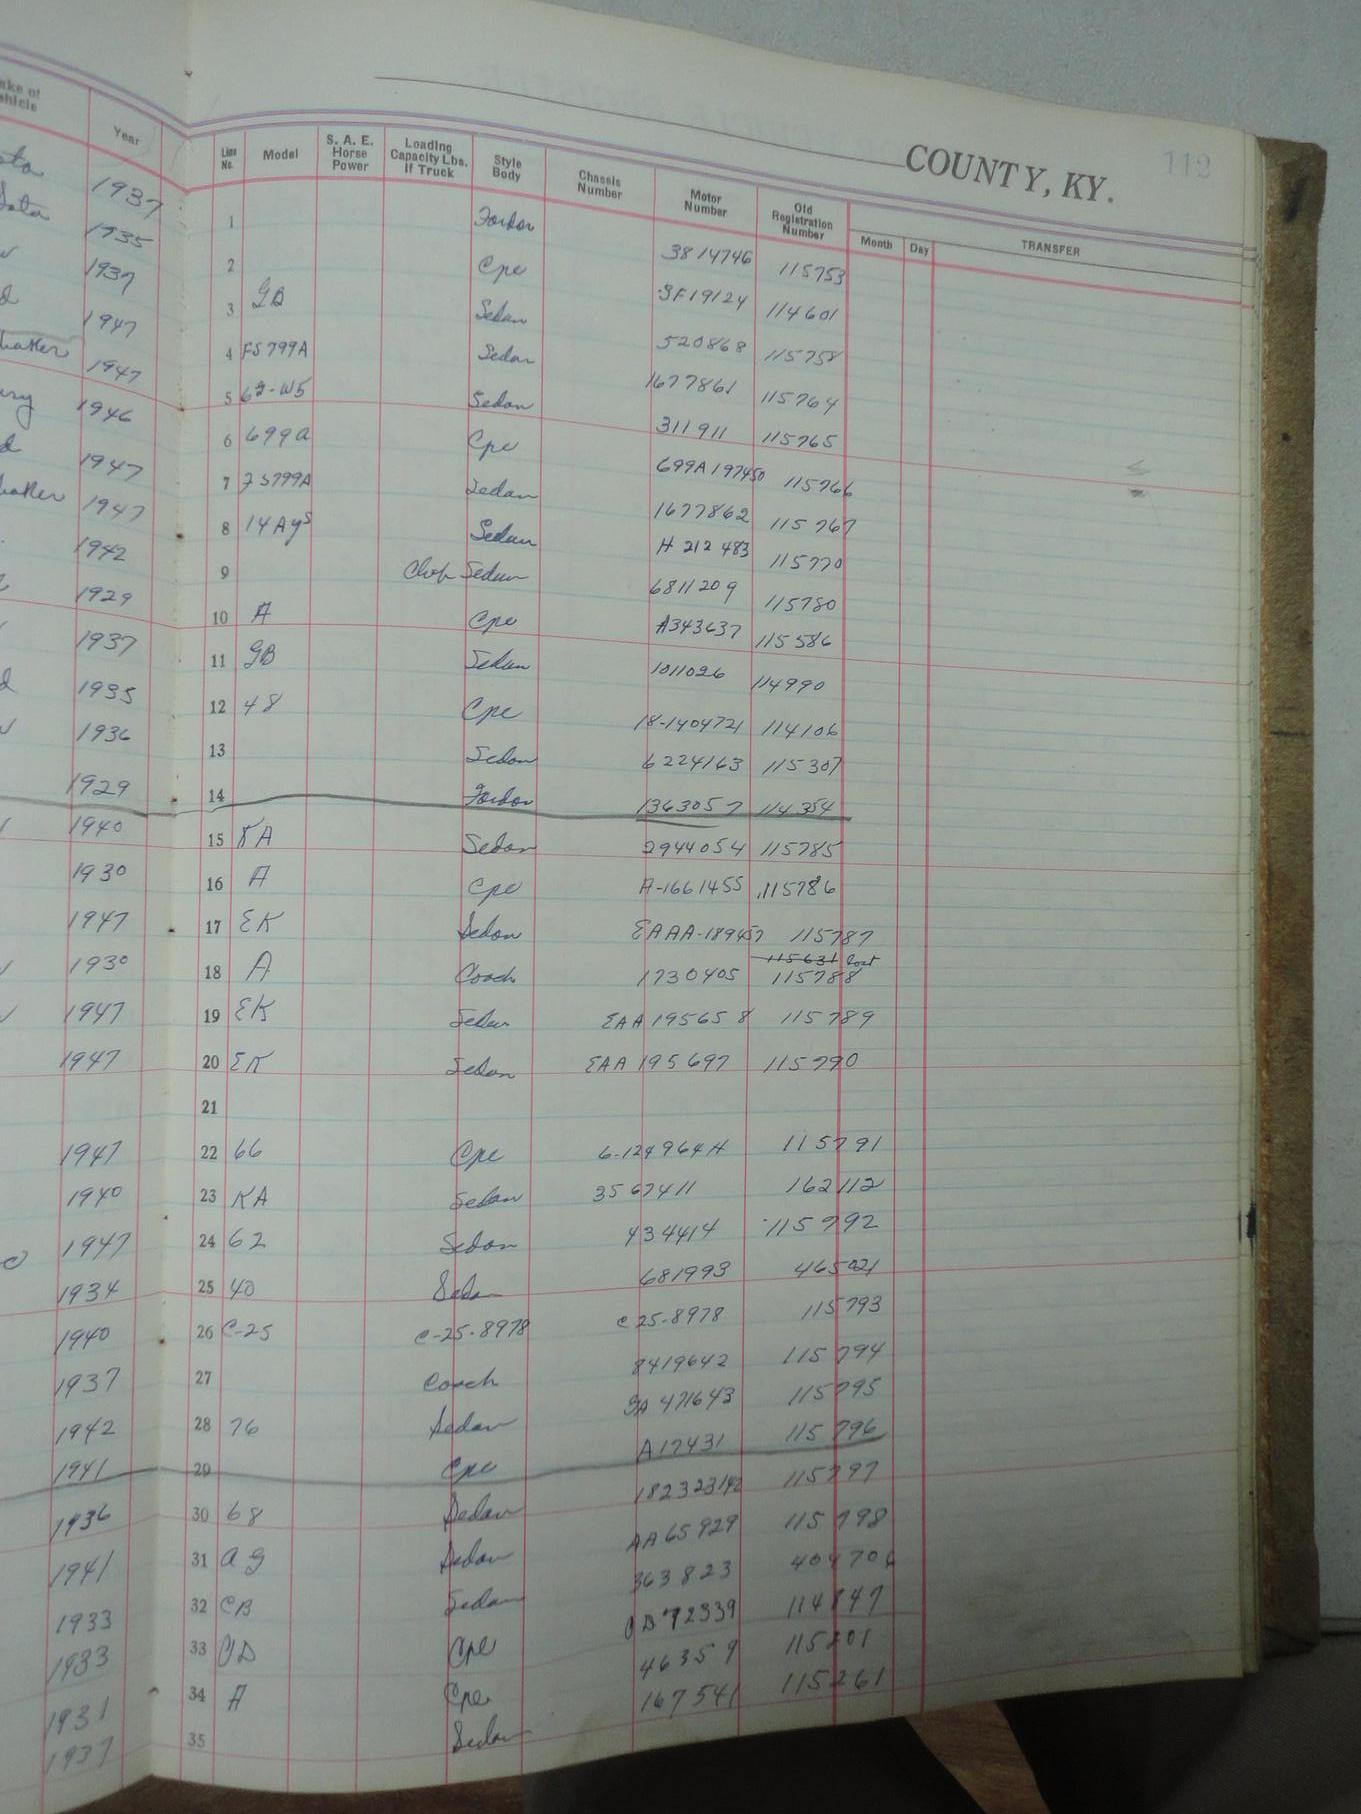 COUNTY, KY. 112
Year Line No. Model S. A. E. Horse Power Loading Capacity Lbs. If Truck Style Body Chassis Number Motor Number Old Registration Number Month Day TRANSFER
1937 1 Fordor 3814746 115753
1935 2 Cpe 114601
1937 3 GB Sedan 520868 115758
1947 4 FS799A Sedan 1677861 115764
1947 5 62-W5 Sedan 311911 115765
1946 6 699a Cpe 699A197450 115766
1947 7 FS799A Sedan 1677862 115767
1947 8 Sedan H 212 483 115770
1942 9 Club Sedan 6811209 115780
1929 10 A Cpe A343637 115586
1937 11 GB Sedan 1011026 114990
1935 12 48 Cpe 18-1404721 114106
1936 13 Sedan 6224163 115307
1929 14 Fordor 1363057 114354
1940 15 KA Sedan 2944054 115785
1930 16 A Cpe A-1661455 115786
1947 17 EK Sedan EAAA-189457 115787
115631 lost
1930 18 A Coach 1730405 115788
1947 19 EK Sedan EAA 195658 115789
1947 20 EK Sedan EAA 195697 115790
21
1947 22 66 Cpe 6-124964H 115791
1940 23 KA Sedan 3567411 162112
1947 24 62 Sedan 434414 115792
1934 25 40 Sedan 681993 465021
1940 26 C-25 C-25-8978 C25-8978 115793
1937 27 Coach 8419642 115794
1942 28 76 Sedan 3A 471643 115795
1941 29 Cpe A17431 115796
1936 30 68 Sedan 115797
1941 31 AG Sedan AA65929 115798
1933 32 CB Sedan 363823 404706
1933 33 CD Cpe CD72339 114847
1931 34 A Cpe 46359 115801
1937 35 Sedan 167541 115261